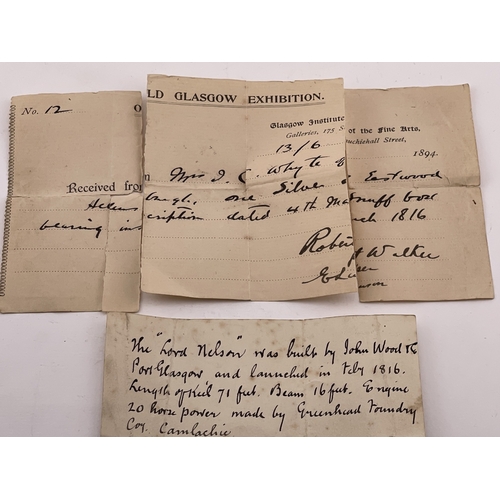 No. 12 O
LD GLASGOW EXHIBITION.
Glasgow Institute of the Fine Arts,
Galleries, 175 S uchiehall Street,
13/6 1894.
Received from Mrs J. C. Whyte of Eastwood
Helens burgh, one Silver snuff box
bearing inscription dated 4th March 1816
Robert Walker
The "Lord Nelson" was built by John Wood &
Port Glasgow and launched in Feby 1816.
Length of Keel 71 feet. Beam 16 feet. Engine
20 horse power made by Greenhead Foundry
Coy. Camlachie